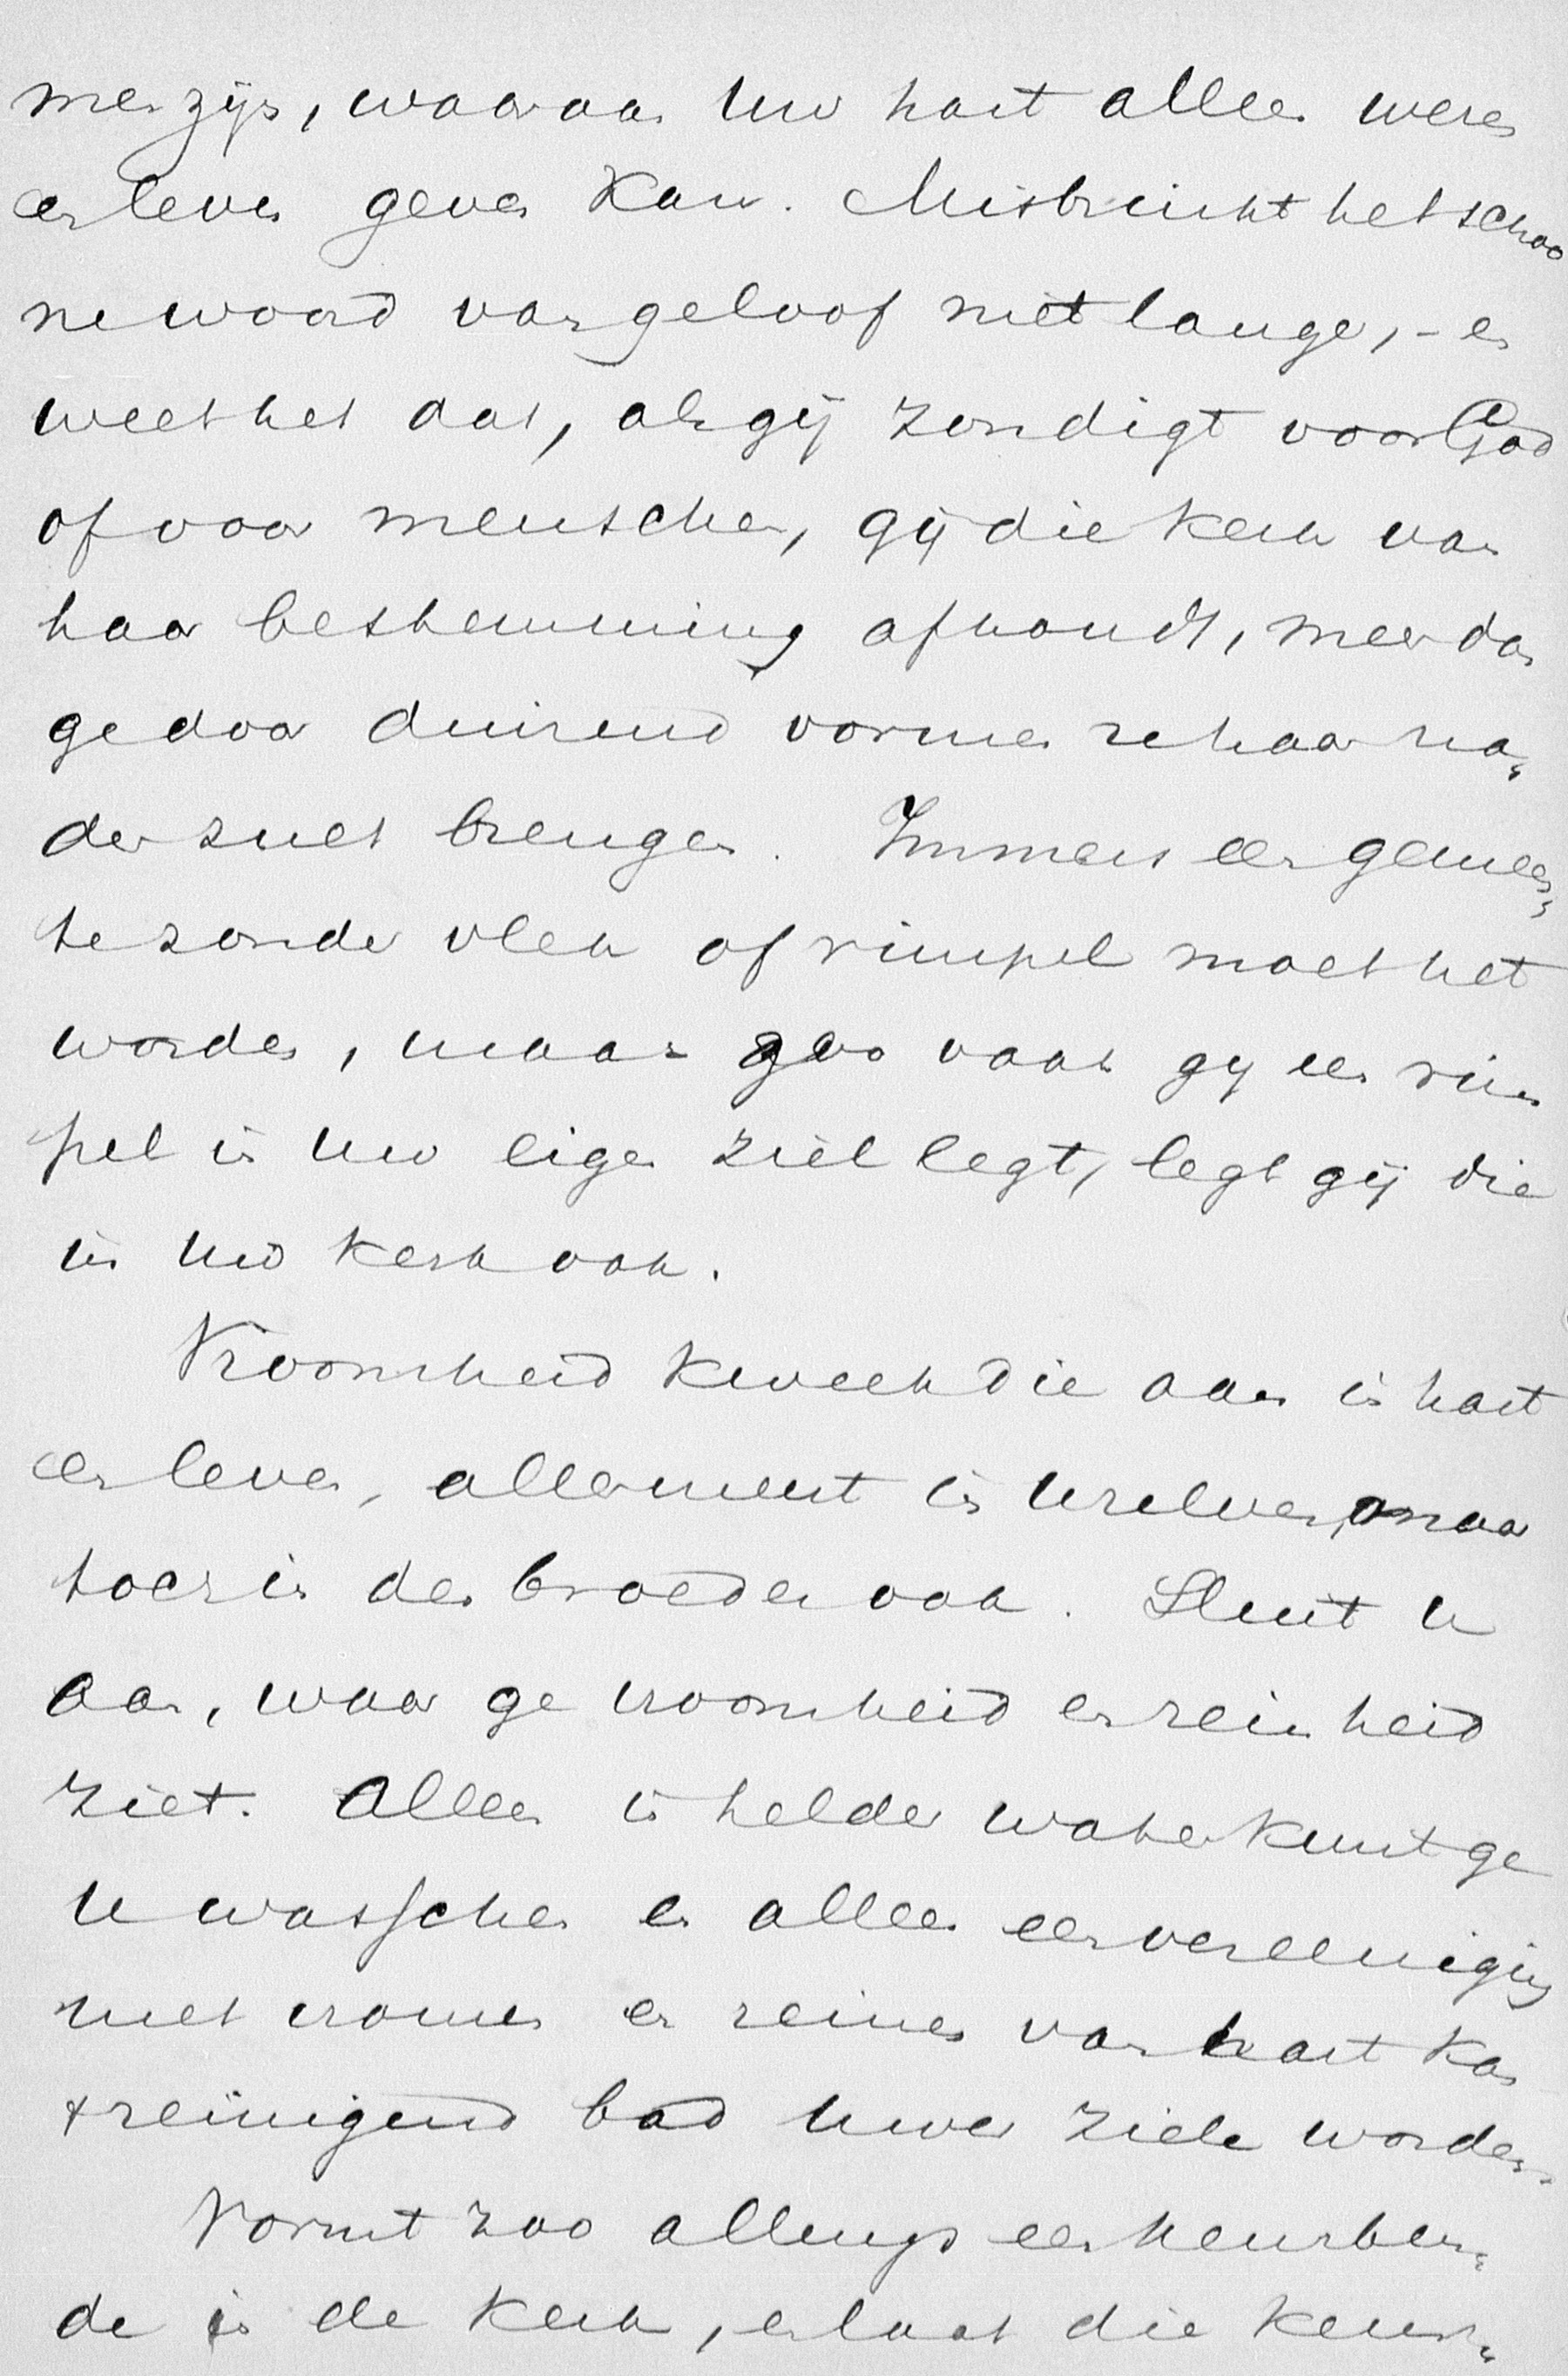 men zijn, waaraan Uw hart alleen wezen
en leven geven kan. Misbruikt het schoo
ne woord van geloof niet langer, - en
weet het dat, als gij zondigt voor God
of voor menschen, gij die kerk van
haar bestemming afhoudt, meer dan
ge door duizend vormen ze haar na-
der zult brengen. Immers een gemeen-
te zonder vlek of rimpel moet het
worden, maar zoo vaak gij een rim
pel in Uw eigen ziel legt, legt gij die
in Uw kerk ook.
Vroomheid kweek die aan in hart
en leven, allereerst in Uzelven, maar
toch in den broeder ook. Sluit U
aan, waar ge vroomheid en reinheid
ziet. Alleen in helder water kunt ge
U wasschen en alleen een vereeniging
met vromen en reinen van hart kan
't reinigend bad Uwer ziele worden.
Vormt zoo allengs een keurben-
de in de kerk, en laat die keur-